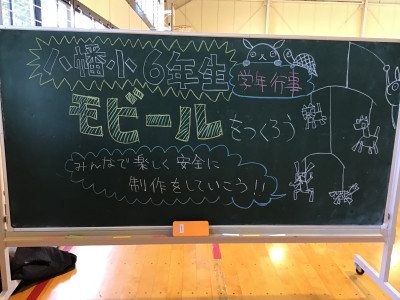 八幡小6年生
学年行事
モビールをつくろう
みんなで楽しく安全に
制作をしていこう!!